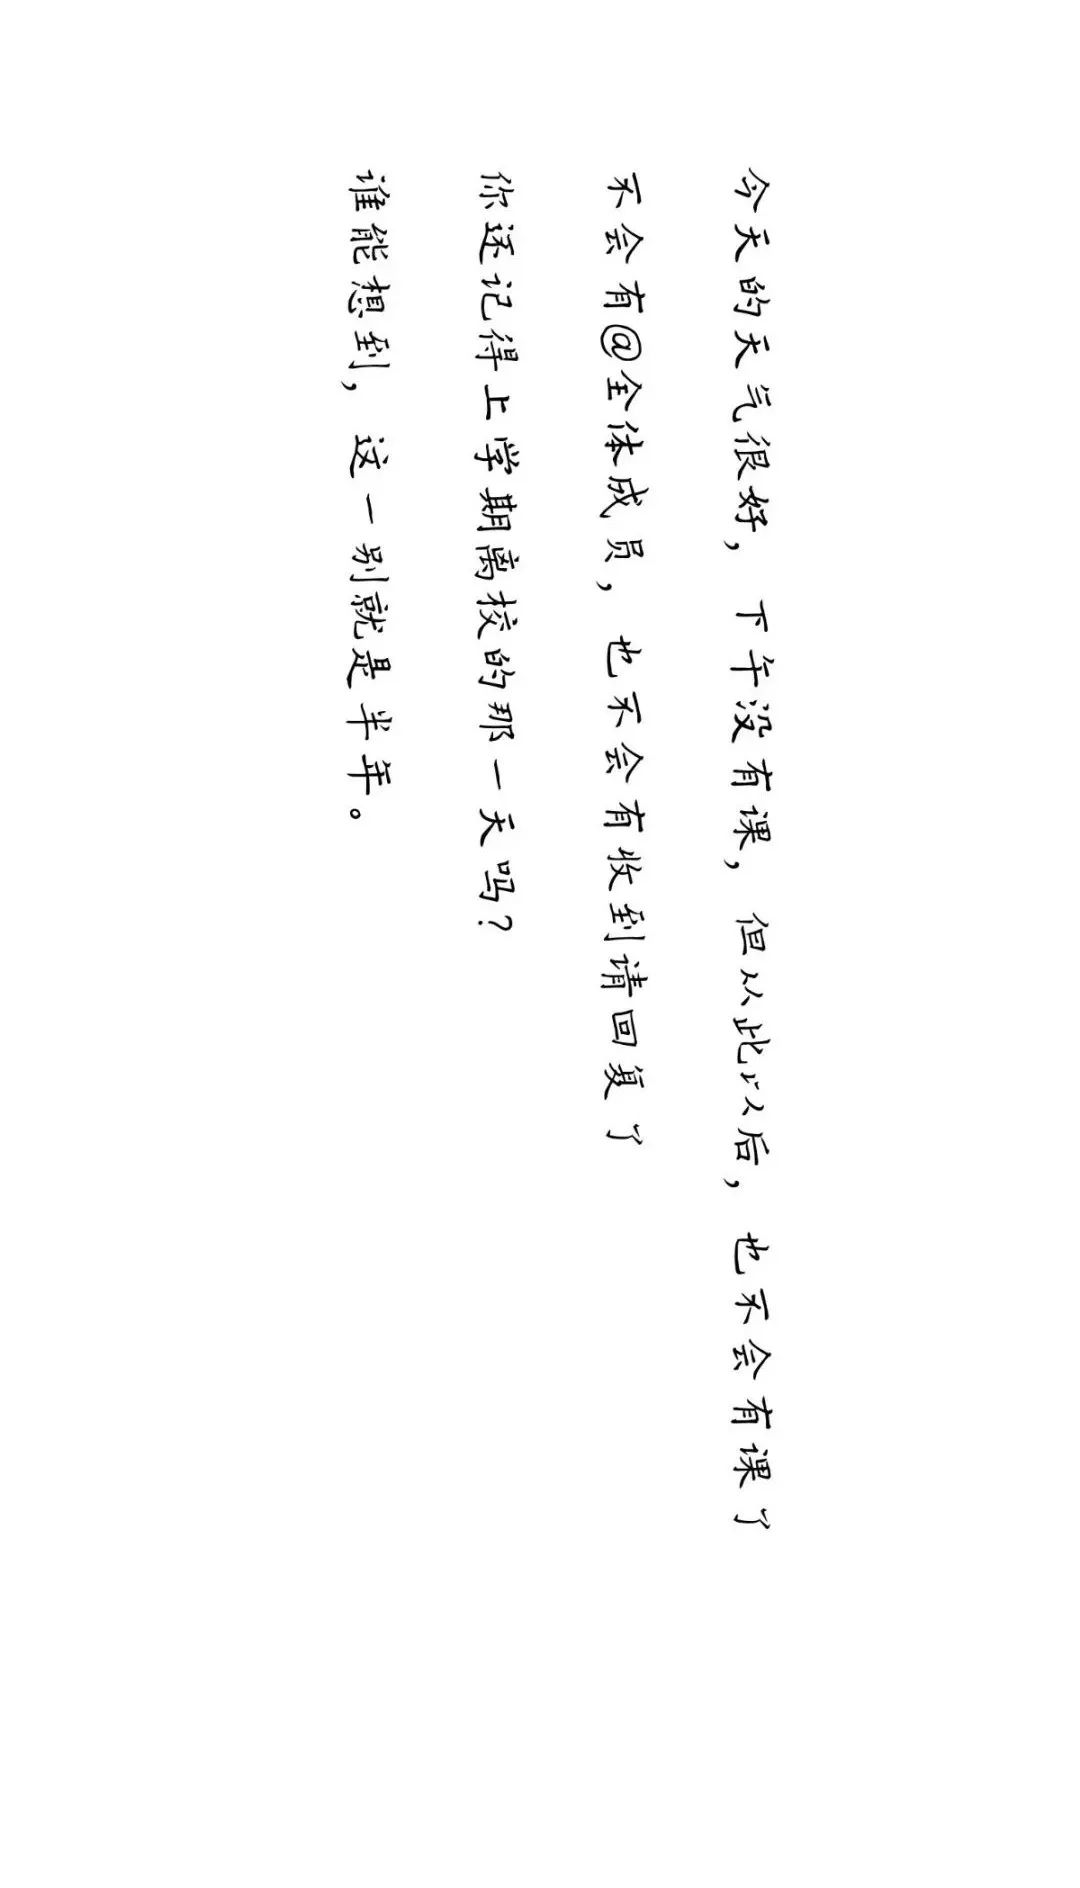 今天的天气很好，下午没有课，但从此以后，也不会有课了
不会有@全体成员，也不会有收到请回复了
你还记得上学期离校的那一天吗？
谁能想到，这一别就是半年。